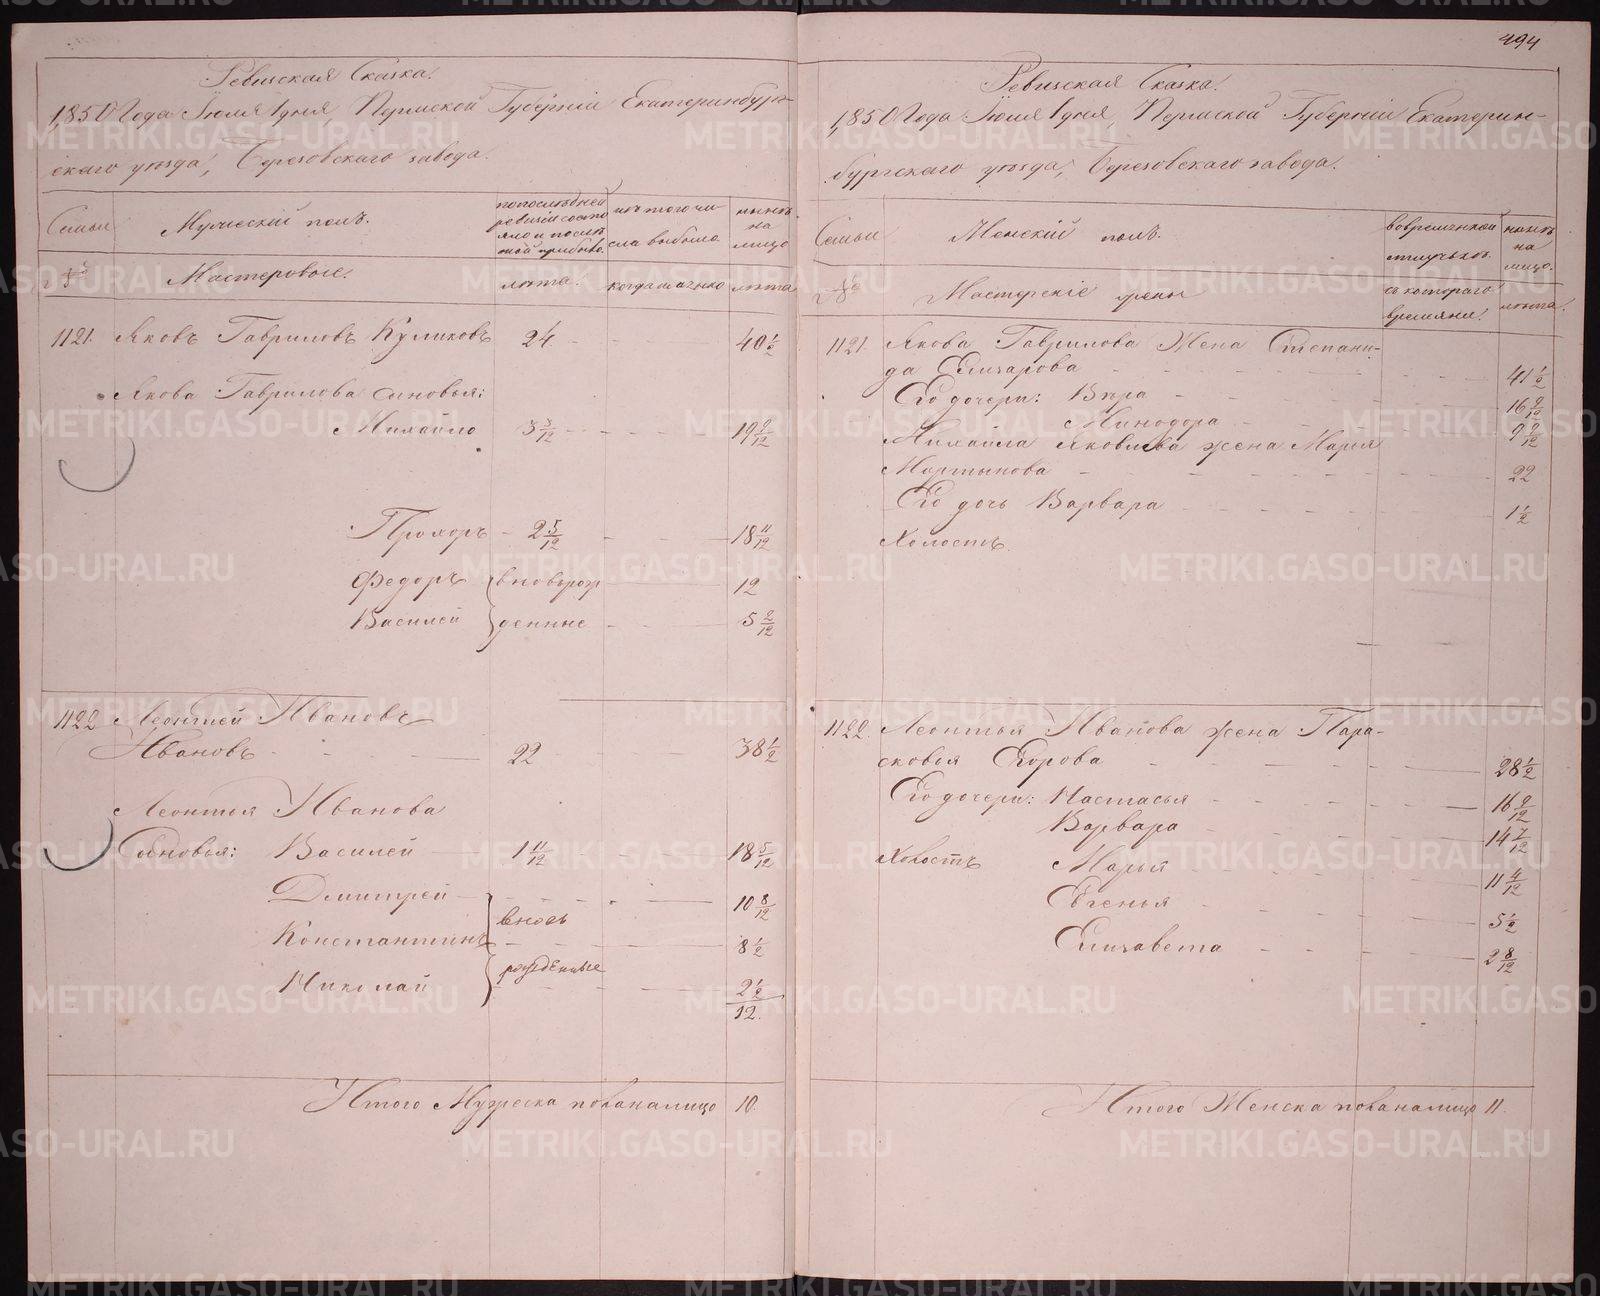 494
Ревизская Сказка.
1850 Года Июля 1 дня, Пермской Губернии Екатеринбург-
скаго уезда, Березовскаго завода.
Семьи
Мужеский полъ.
по последней ревизии состояло и после той прибыло
изъ того числа выбыло
нынѣ на лицо
№
Мастеровые.
лѣта
когда именно
лѣта
1121. Яковъ Гавриловъ Куликовъ 24 40 1/2
Якова Гаврилова сыновья:
Михайло 3 3/12 19 9/12
Прохоръ 2 5/12 18 11/12
Федоръ вновьрож 12
Василей денные 5 2/12
1122 Леонтей Ивановъ
Ивановъ 22 38 1/2
Леонтья Иванова
Сыновья: Василей 1 11/12 18 5/12
Дмитрей 10 8/12
вновь
Константинъ 8 1/2
рожденные
Николай 2 1/2
12.
Итого Мужеска пола на лицо 10.
Ревизская Сказка.
1850 Года Июля 1 дня, Пермской Губернии Екатерин-
бургскаго уезда, Березовскаго завода.
Семьи
Женский полъ.
во временной отлучкѣ
нынѣ на лицо.
№
Мастерские жены
съ котораго времяни.
лѣта.
1121. Якова Гаврилова Жена Степани-
да Елизарова 41 1/2
Его дочери: Вера 16 9/12
Минодора 9 9/12
Михайла Яковлева жена Марья
Мартынова 22
Его дочь Варвара 1 1/2
Холостъ.
1122. Леонтья Иванова жена Пара-
сковья Егорова 28 1/2
Его дочери: Настасья 16 9/12
Варвара 14 7/12
Холостъ Марья 11 4/12
Евгенья 5 1/2
Елизавета 2 8/12
Итого Женска пола на лицо 11.
METRIKI.GASO-URAL.RU